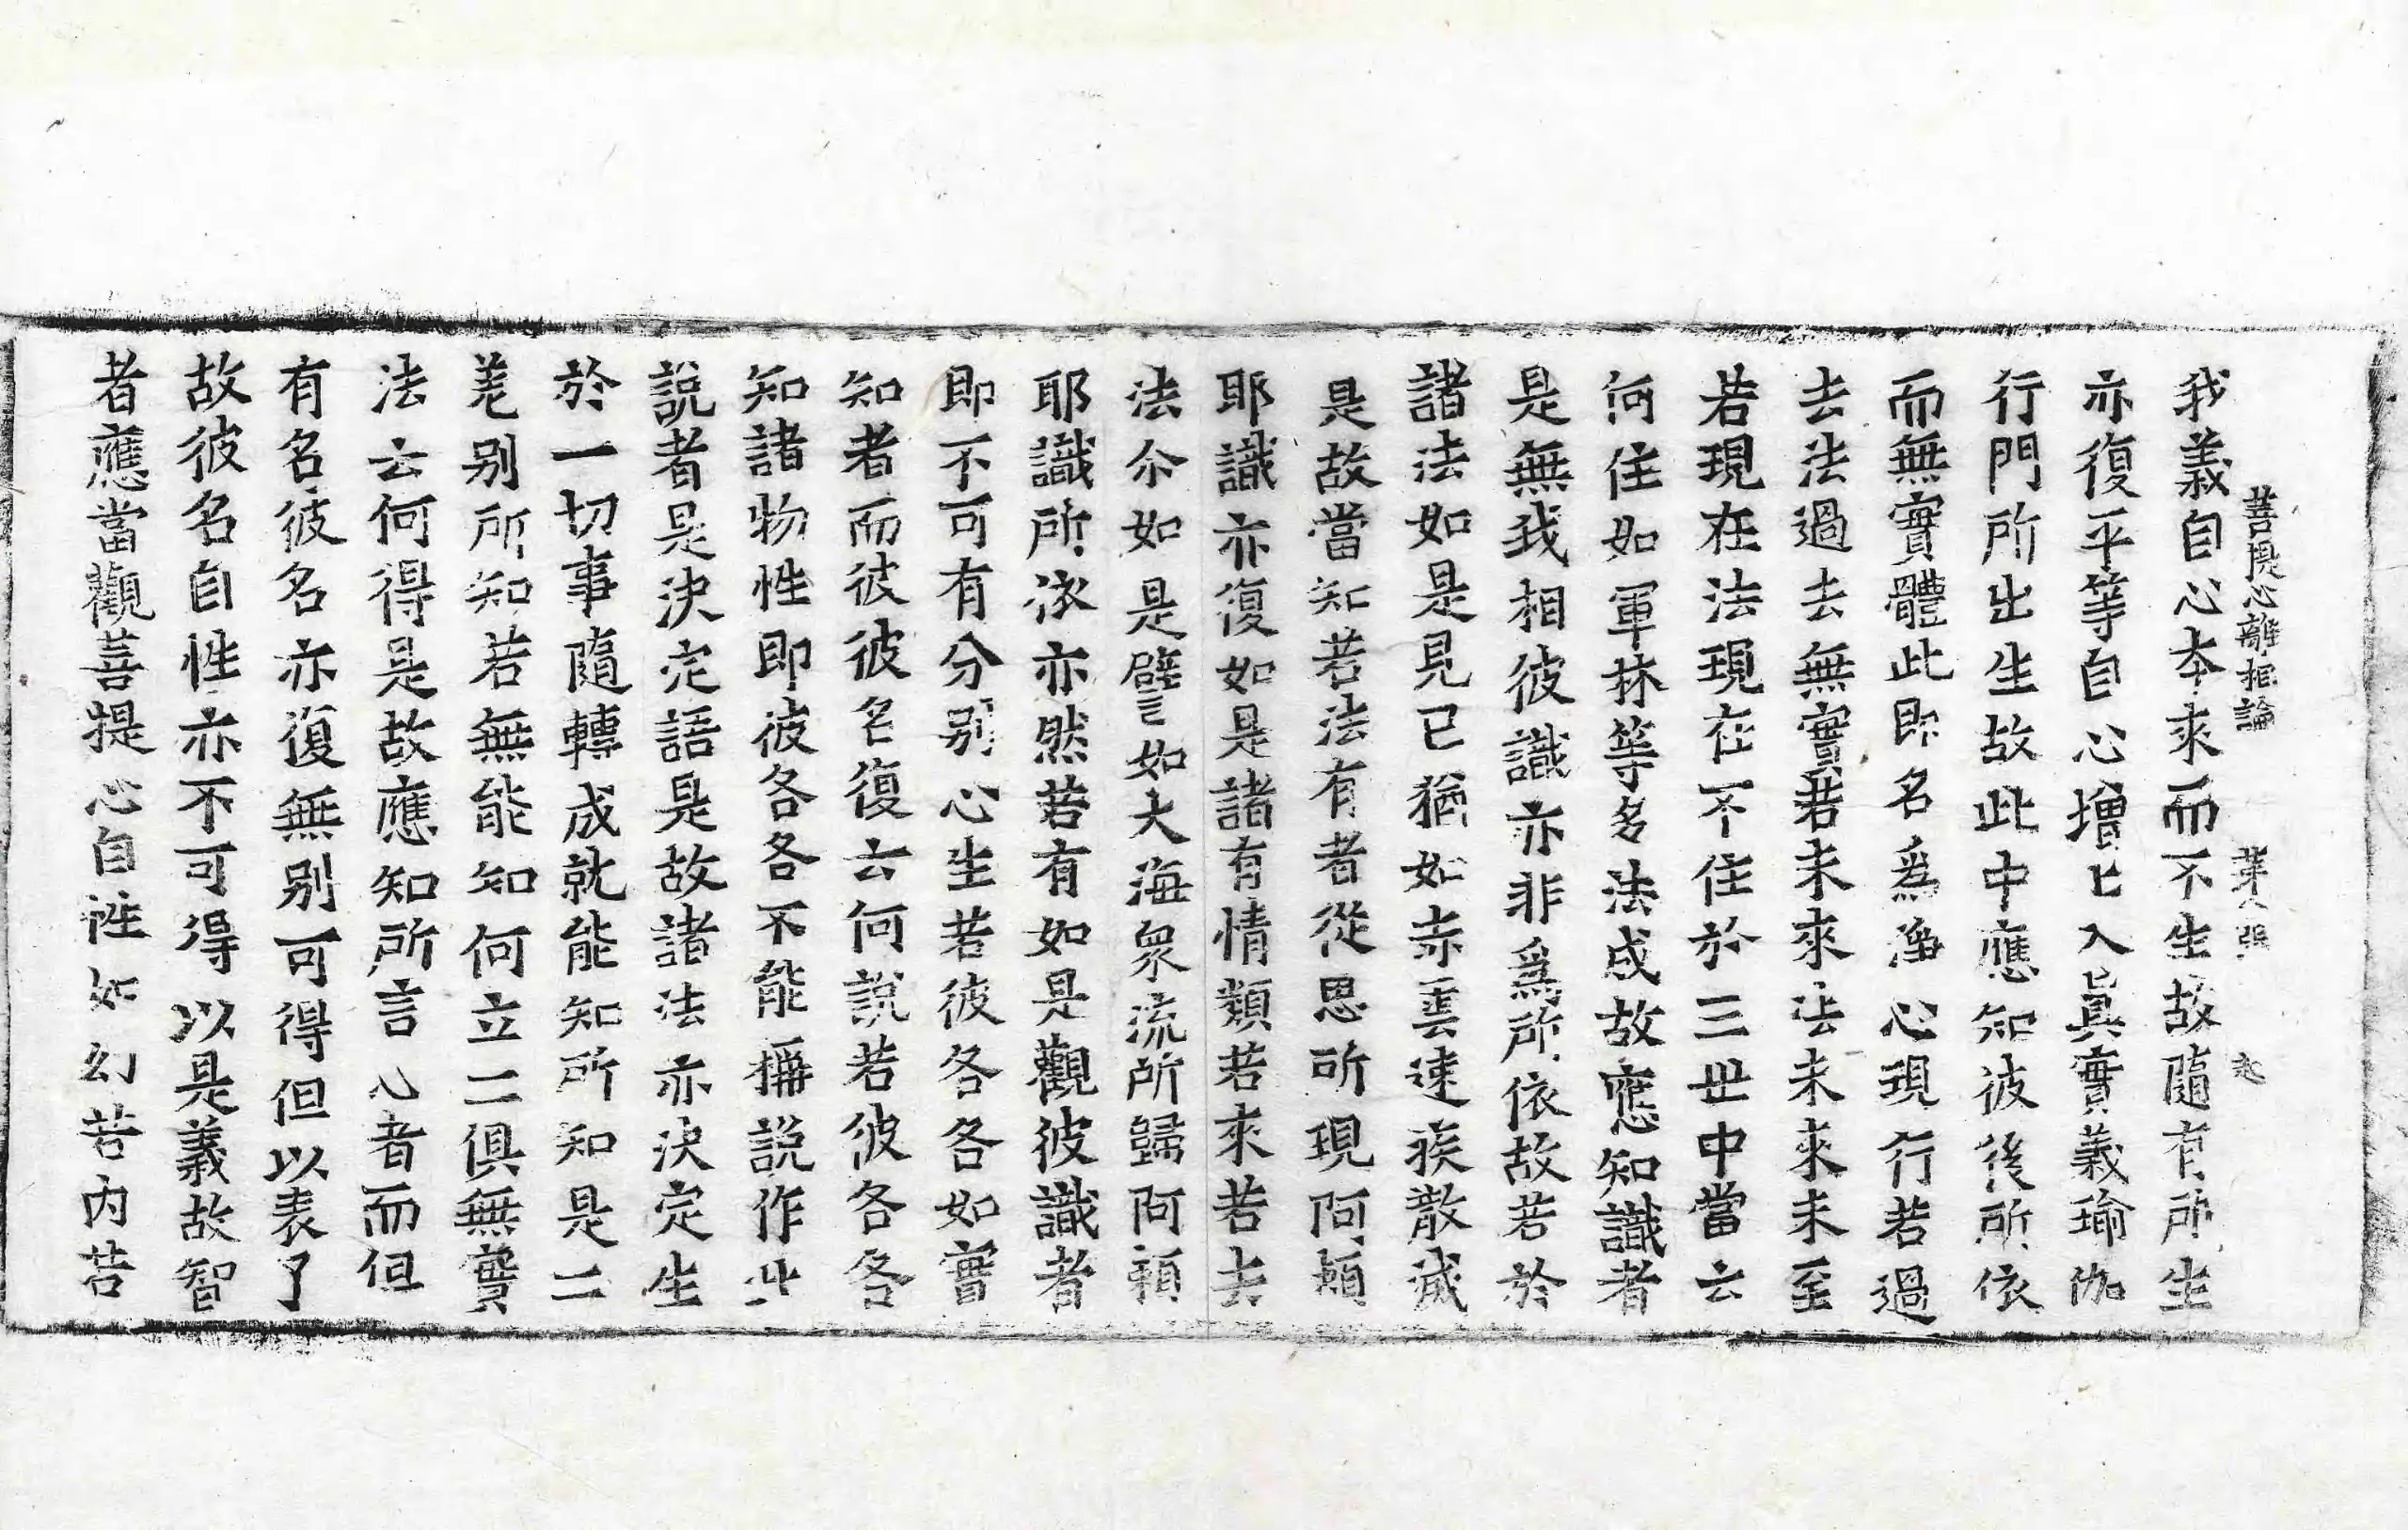 菩提心離相論 第八張 起
我義自心本來而不生故隨有所生
亦復平等自心增上入眞實義瑜伽
行門所出生故此中應知彼後所依
而無實體此即名爲淨心現行若過
去法過去無實若未來法未來未至
若現在法現在不住於三世中當云
何住如軍林等多法成故應知識者
是無我相彼識亦非爲所依故若於
諸法如是見已猶如赤雲速疾散滅
是故當知若法有者從思所現阿賴
耶識亦復如是諸有情類若來若去
法尒如是譬如大海衆流所歸阿賴
耶識所依亦然若有如是觀彼識者
即不可有分別心生若彼各各如實
知者而彼彼名復云何說若彼各各
知諸物性即彼各各不能稱說作此
說者是決定語是故諸法亦決定生
於一切事隨轉成就能知所知是二
差别所知若無能知何立二俱無實
法云何得是故應知所言心者而但
有名彼名亦復無别可得但以表了
故彼名自性亦不可得以是義故智
者應當觀菩提心自性如幻若内若